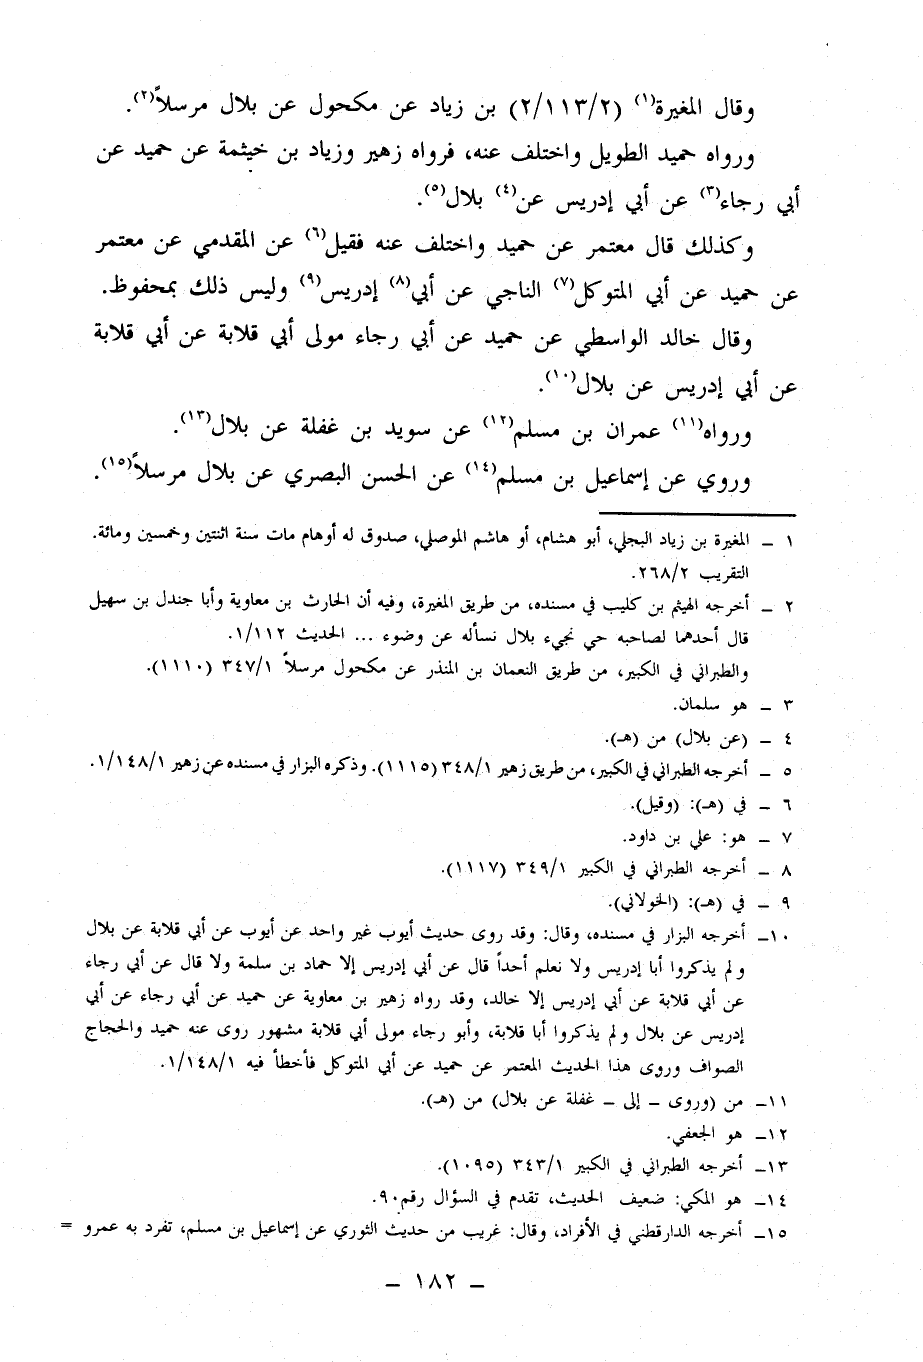 وقال المغيرة(١) (٢/١١٣/٢) بن زياد عن مكحول عن بلال مرسلاً(٢).
ورواه حميد الطويل واختلف عنه، فرواه زهير وزياد بن خيثمة عن حميد عن
أبي رجاء(٣) عن أبي إدريس عن(٤) بلال(٥).
وكذلك قال معتمر عن حميد واختلف عنه فقيل(٦) عن المقدمي عن معتمر
عن حميد عن أبي المتوكل(٧) الناجي عن أبي(٨) إدريس(٩) وليس ذلك بمحفوظ.
وقال خالد الواسطي عن حميد عن أبي رجاء مولى أبي قلابة عن أبي قلابة
عن أبي إدريس عن بلال(١٠).
ورواه(١١) عمران بن مسلم(١٢) عن سويد بن غفلة عن بلال(١٣).
وروي عن إسماعيل بن مسلم(١٤) عن الحسن البصري عن بلال مرسلاً(١٥).
١ ـ المغيرة بن زياد البجلي، أبو هشام، أو هاشم الموصلي، صدوق له أوهام مات سنة اثنتين وخمسين ومائة.
التقريب ٢٦٨/٢.
٢ ـ أخرجه الهيثم بن كليب في مسنده، من طريق المغيرة، وفيه أن الحارث بن معاوية وأبا جندل بن سهيل
قال أحدهما لصاحبه حي نجيء بلال نسأله عن وضوء ... الحديث ١/١١٢.
والطبراني في الكبير، من طريق النعمان بن المنذر عن مكحول مرسلاً ٣٤٧/١ (١١١٠).
٣ ـ هو سلمان.
٤ ـ (عن بلال) من (هـ).
٥ ـ أخرجه الطبراني في الكبير، من طريق زهير ٣٤٨/١ (١١١٥). وذكره البزار في مسنده عن زهير ١/١٤٨/١.
٦ ـ في (هـ): (وقيل).
٧ ـ هو: علي بن داود.
٨ ـ أخرجه الطبراني في الكبير ٣٤٩/١ (١١١٧).
٩ ـ في (هـ): (الخولاني).
١٠ـ أخرجه البزار في مسنده، وقال: وقد روى حديث أيوب غير واحد عن أيوب عن أبي قلابة عن بلال
ولم يذكروا أبا إدريس ولا نعلم أحداً قال عن أبي إدريس إلا حماد بن سلمة ولا قال عن أبي رجاء
عن أبي قلابة عن أبي إدريس إلا خالد، وقد رواه زهير بن معاوية عن حميد عن أبي رجاء عن أبي
إدريس عن بلال ولم يذكروا أبا قلابة، وأبو رجاء مولى أبي قلابة مشهور روى عنه حميد والحجاج
الصواف وروى هذا الحديث المعتمر عن حميد عن أبي المتوكل فأخطأ فيه ١/١٤٨/١.
١١ـ من (وروى ـ إلى ـ غفلة عن بلال) من (هـ).
١٢ـ هو الجعفي.
١٣ـ أخرجه الطبراني في الكبير ٣٤٣/١ (١٠٩٥).
١٤ـ هو المكي: ضعيف الحديث، تقدم في السؤال رقم ٩٠.
١٥ـ أخرجه الدارقطني في الأفراد، وقال: غريب من حديث الثوري عن إسماعيل بن مسلم، تفرد به عمرو =
ـ ١٨٢ ـ